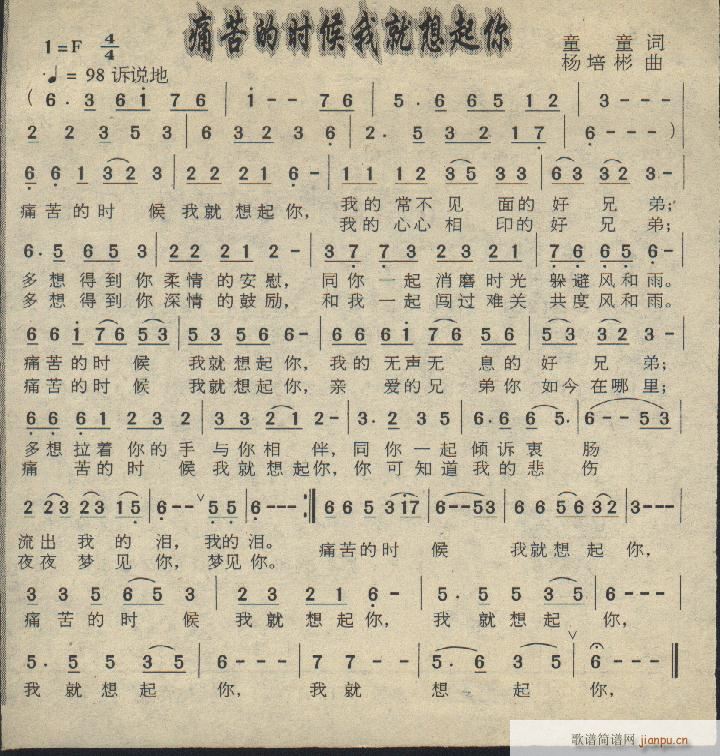 痛苦的时候我就想起你
1=F 4/4
童 童 词
杨培彬 曲
♩= 98 诉说地
( 6 · 3 6 1 7 6 | 1 - - 7 6 | 5 · 6 6 5 1 2 | 3 - - - |
2 2 3 5 3 | 6 3 2 3 6 | 2 · 5 3 2 1 7 | 6 - - - )
6 6 1 3 2 3 | 2 2 2 1 6 - | 1 1 1 2 3 5 3 3 | 6 3 3 2 3 - |
痛苦的时 候 我就想起你， 我的常不见 面的好 兄 弟；
我的心心相 印的好 兄 弟；
6 · 5 6 5 3 | 2 2 2 1 2 - | 3 7 7 3 2 3 2 1 | 7 6 6 5 6 - |
多想得到你柔情的安慰， 同你一起消磨时光 躲避风和雨。
多想得到你深情的鼓励， 和我一起闯过难关 共度风和雨。
6 6 1 7 6 5 3 | 5 3 5 6 6 - | 6 6 6 1 7 6 5 6 | 5 3 3 2 3 - |
痛苦的时 候 我就想起你， 我的无声无 息的好 兄 弟；
痛苦的时 候 我就想起你， 亲 爱的兄 弟你 如今在哪里；
6 6 6 1 2 3 2 | 3 3 2 1 2 - | 3 · 2 3 5 | 6 · 6 6 2 5 · | 6 - - 5 3 |
多想拉着你的手 与你相 伴， 同你一起倾诉衷 肠
痛 苦的时 候 我就想起你， 你可知道我的悲 伤
2 2 3 2 3 1 5 | 6 - - ∨ 5 5 | 6 - - - :‖ 6 6 5 3 1 7 | 6 - - 5 3 | 6 6 5 6 3 2 | 3 - - - |
流出 我 的 泪， 我的泪。 痛苦的时 候 我就想 起 你，
夜夜 梦 见 你， 梦见你。
3 3 5 6 5 3 | 2 3 2 1 6 - | 5 · 5 5 3 5 | 6 - - - |
痛苦的时 候 我就想起你， 我 就想起 你，
5 · 5 5 3 5 | 6 - - - | 7 7 - - | 5 · 6 3 5 ∨ | 6 - - - ‖
我 就想 起 你， 我就 想 起 你，
歌谱简谱网
jianpu.cn